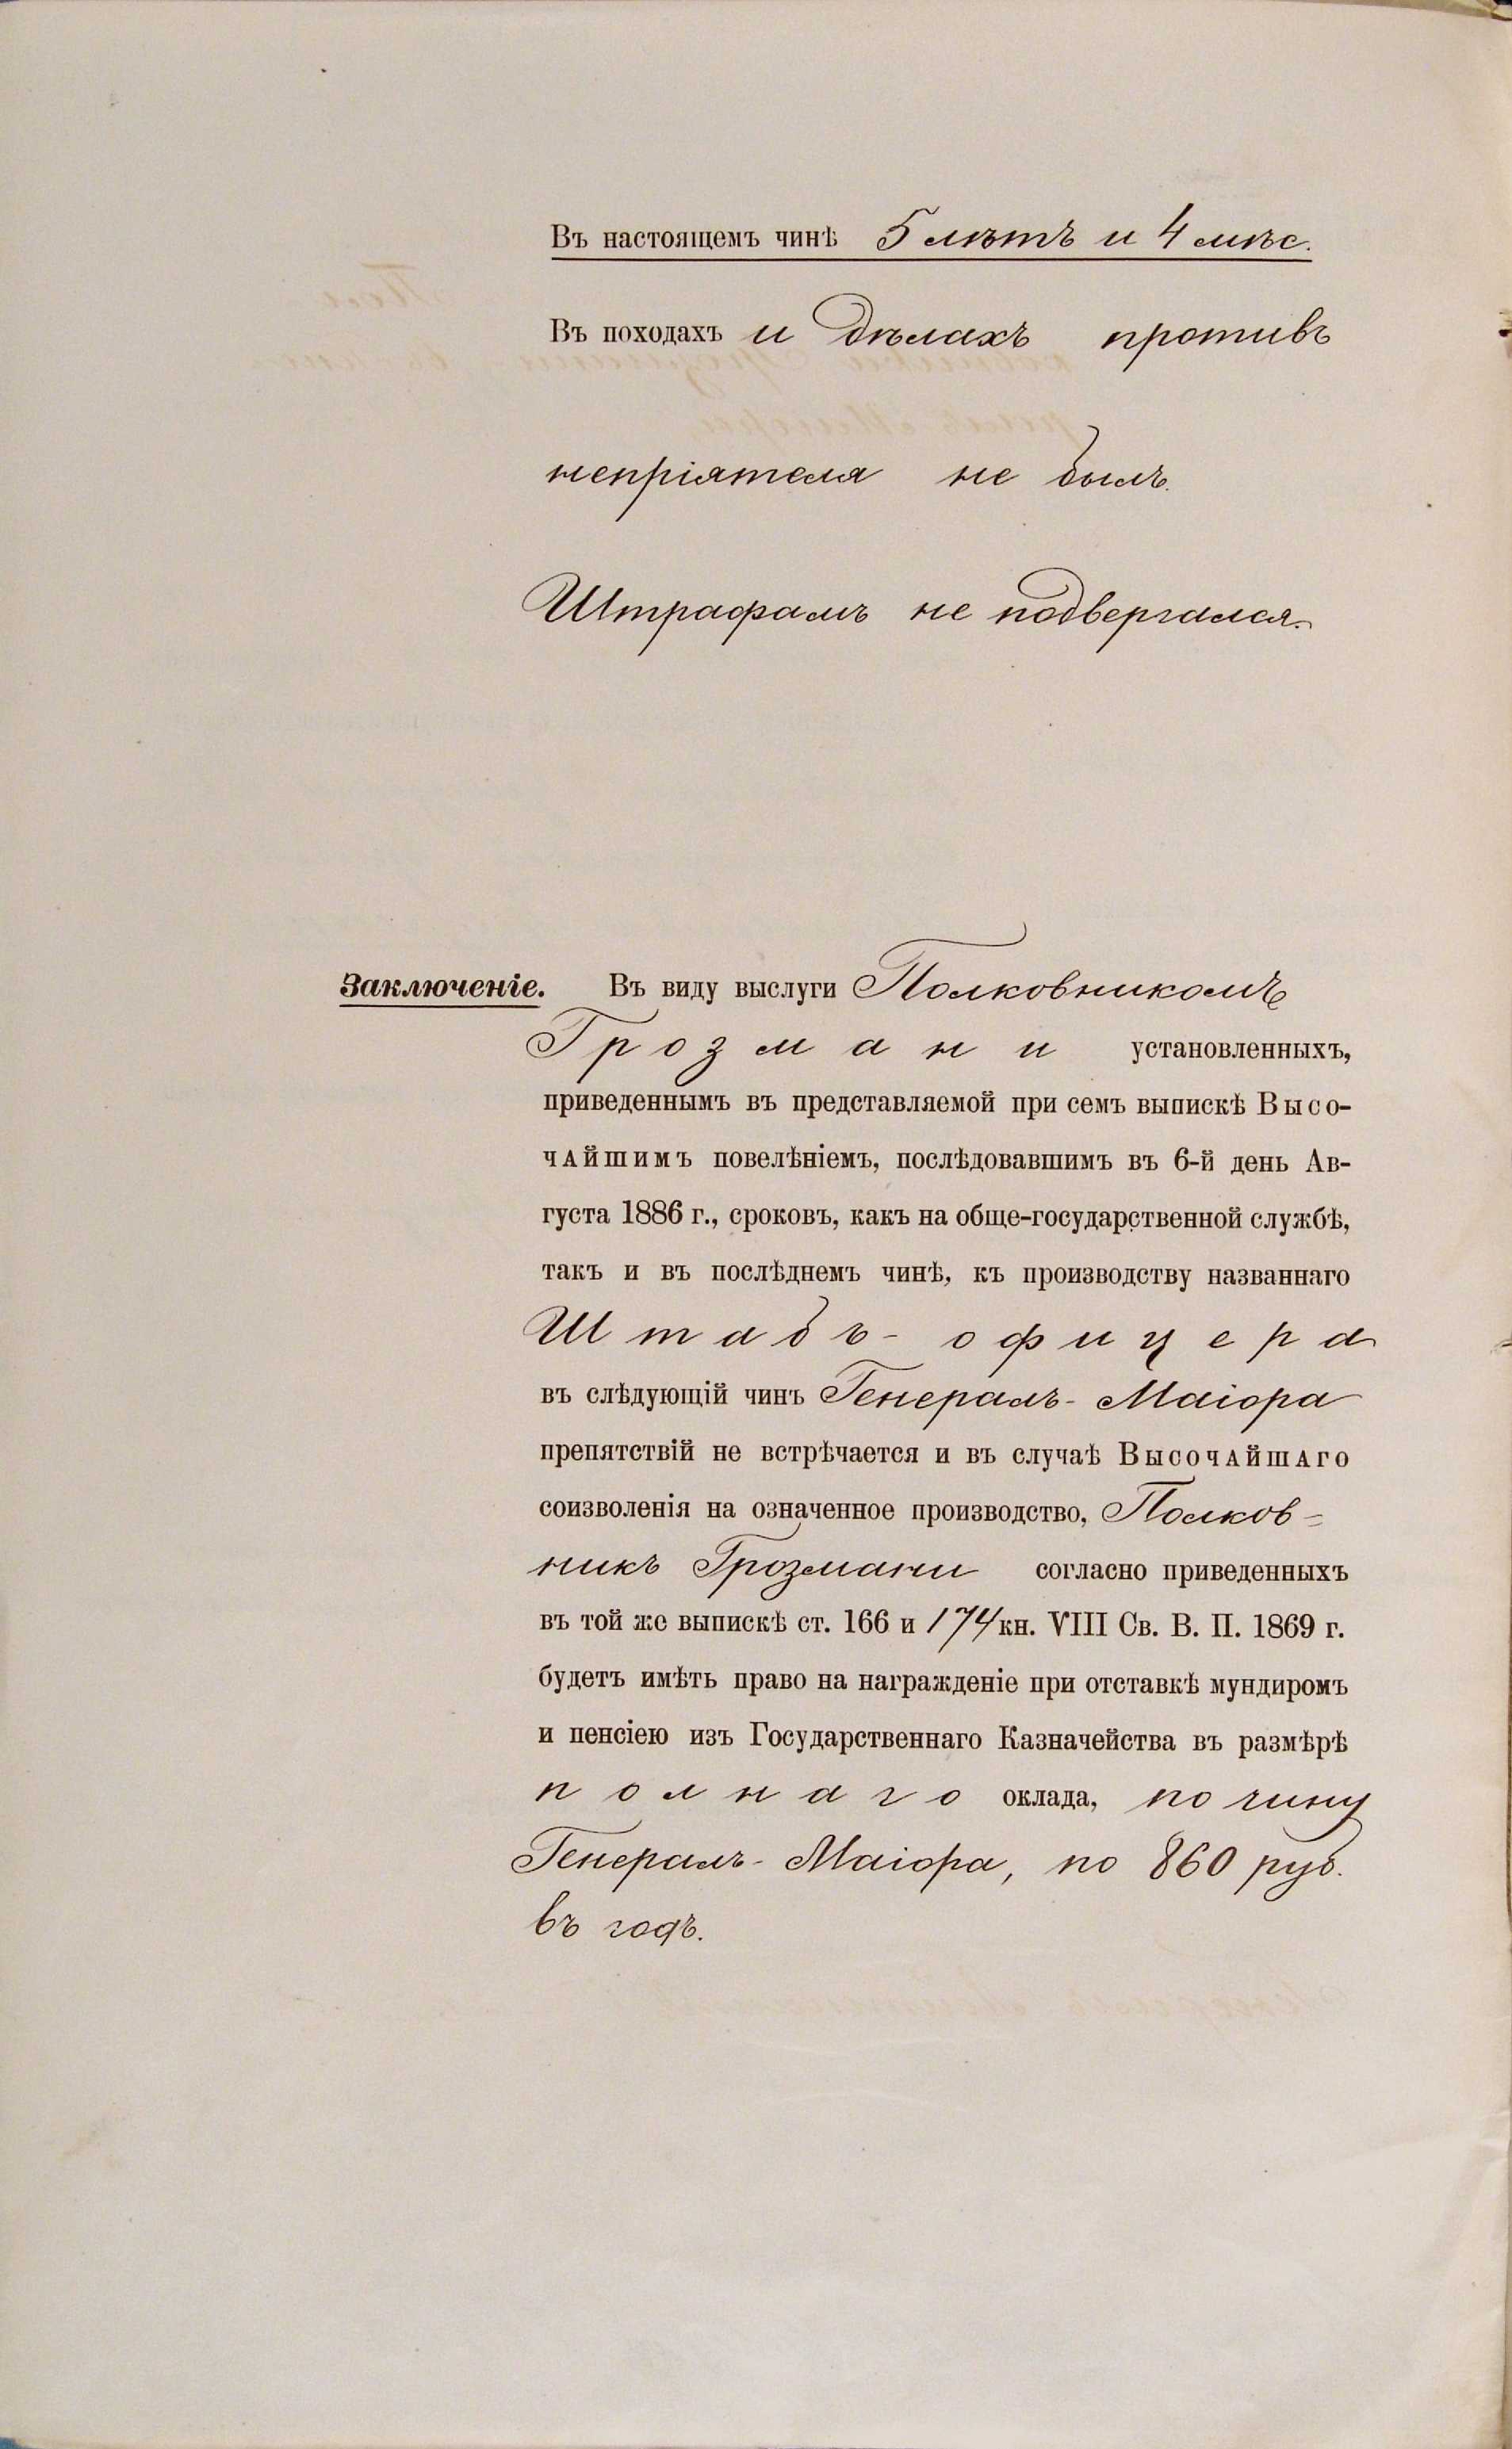 Въ настоящемъ чинѣ 5 лѣтъ и 4 мѣс.
Въ походахъ и дѣлахъ противъ
непріятеля не былъ.
Штрафамъ не подвергался.
Заключеніе. Въ виду выслуги Полковникомъ
Грозмани установленныхъ,
приведеннымъ въ представляемой при семъ выпискѣ Высо-
чАйшимъ повелѣніемъ, послѣдовавшимъ въ 6-й день Ав-
густа 1886 г., сроковъ, какъ на обще-государственной службѣ,
такъ и въ послѣднемъ чинѣ, къ производству названнаго
Штабъ-офицера
въ слѣдующій чинъ Генералъ-Маіора
препятствій не встрѣчается и въ случаѣ ВысочАйшАго
соизволенія на означенное производство, Полков-
никъ Грозмани согласно приведенныхъ
въ той же выпискѣ ст. 166 и 174 кн. VIII Св. В. П. 1869 г.
будетъ имѣть право на награжденіе при отставкѣ мундиромъ
и пенсіею изъ Государственнаго Казначейства въ размѣрѣ
полнаго оклада, по чину
Генералъ-Маіора, по 860 руб.
въ годъ.